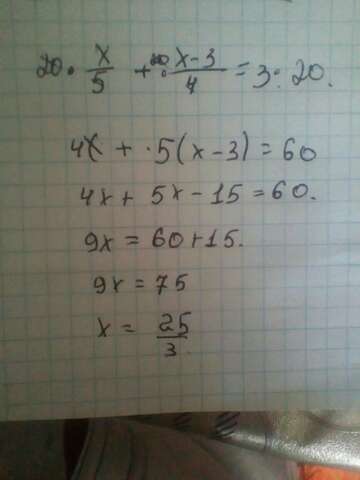 20 · x/5 + 20 · x-3/4 = 3 · 20.
4x + · 5(x-3) = 60
4x + 5x - 15 = 60.
9x = 60+15.
9x = 75
x = 25/3